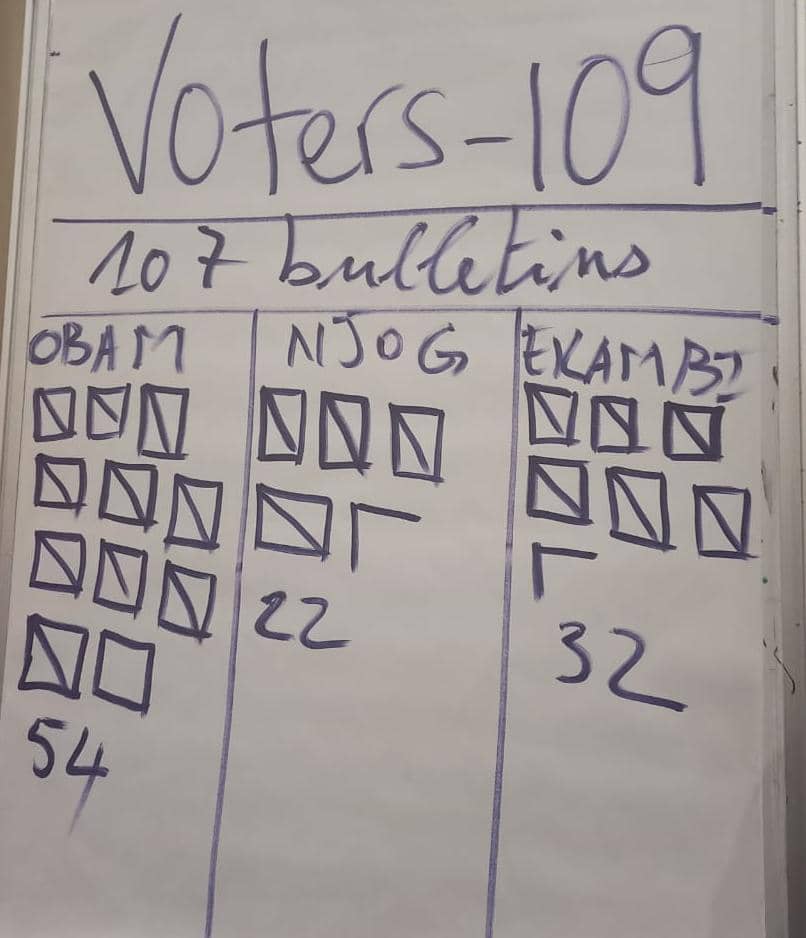 Voters-109
107 bulletins
OBAM
NJOG
EKAMBI
54
22
32